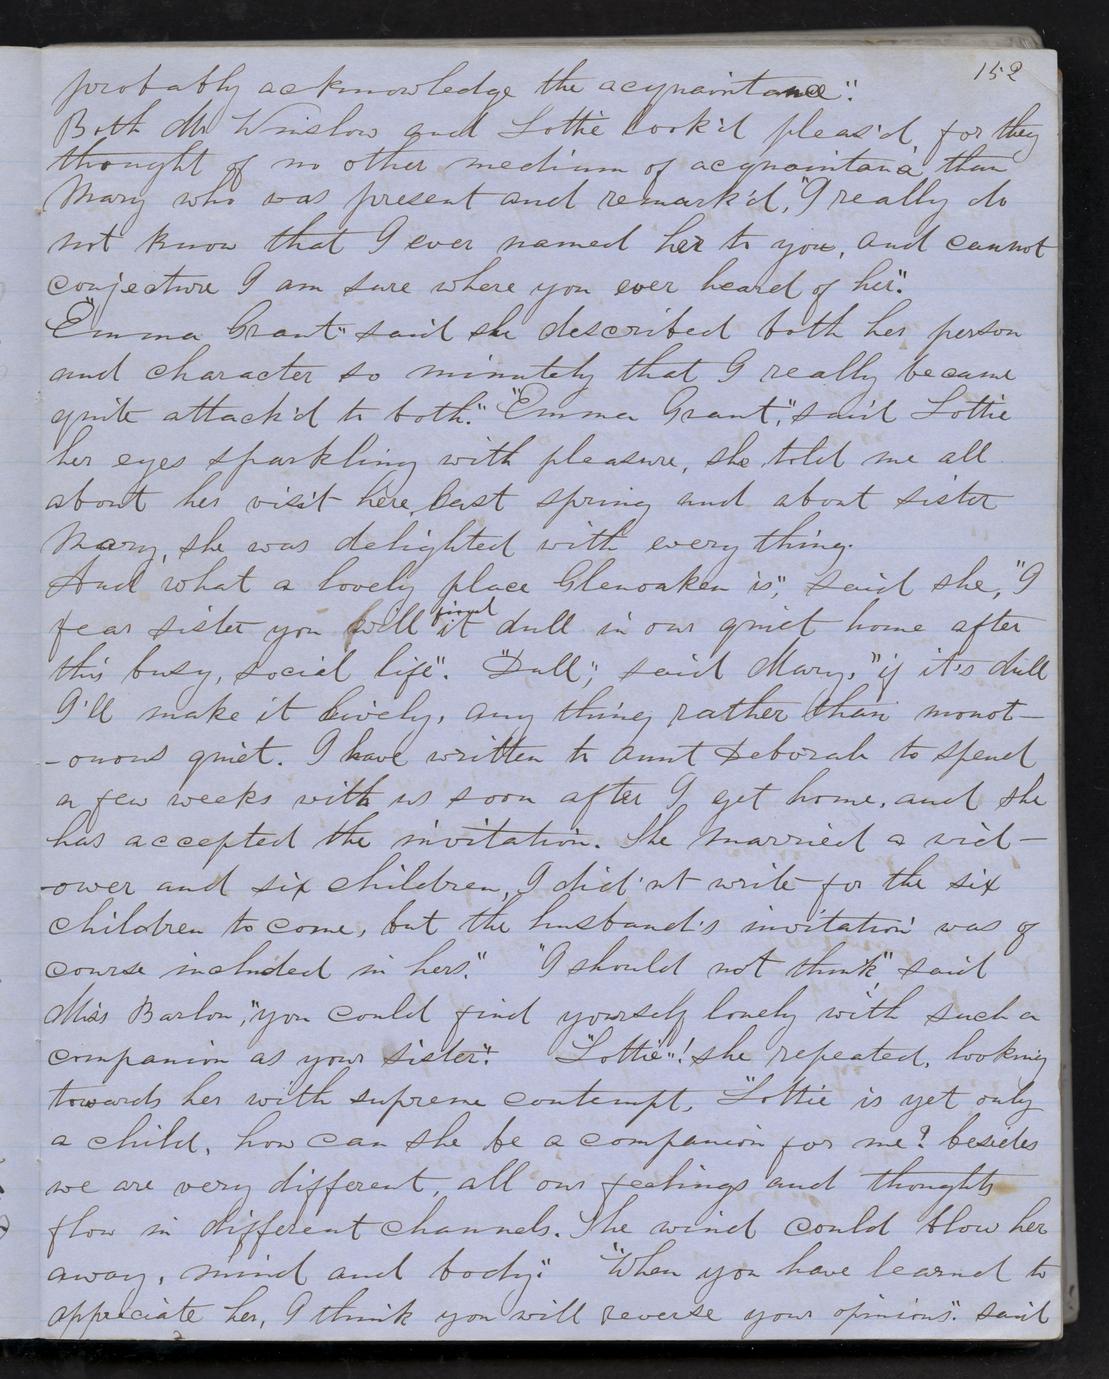 152
probably acknowledge the acquaintance".
Both Mr Winslow and Lottie look'd pleas'd, for they
thought of no other medium of acquaintance than
Mary who was present and remark'd, "I really do
not know that I ever named her to you, and cannot
conjecture I am sure where you ever heard of her".
"Emma Grant" said she described both her person
and character so minutely that I really became
quite attach'd to both". "Emma Grant", said Lottie
her eyes sparkling with pleasure, she told me all
about her visit here, last spring and about sister
Mary, she was delighted with every thing.
And what a lovely place Glenoaken is", said she, "I
fear sister you will find it dull in our quiet home after
this busy, social life". "Dull", said Mary, "if it's dull
I'll make it lively, any thing rather than monot-
-onous quiet. I have written to aunt Deborah to spend
a few weeks with us soon after I get home, and she
has accepted the invitation. She married a wid-
-ower and six children, I did'nt write for the six
children to come, but the husband's invitation was of
course included in hers". "I should not think" said
Miss Barlow, "you could find yourself lonely with such a
companion as your sister". "Lottie"! she repeated, looking
towards her with supreme contempt, "Lottie is yet only
a child, how can she be a companion for me? besides
we are very different, all our feelings and thoughts
flow in different channels. The wind could blow her
away, mind and body". "When you have learned to
appreciate her, I think you will reverse your opinions". said